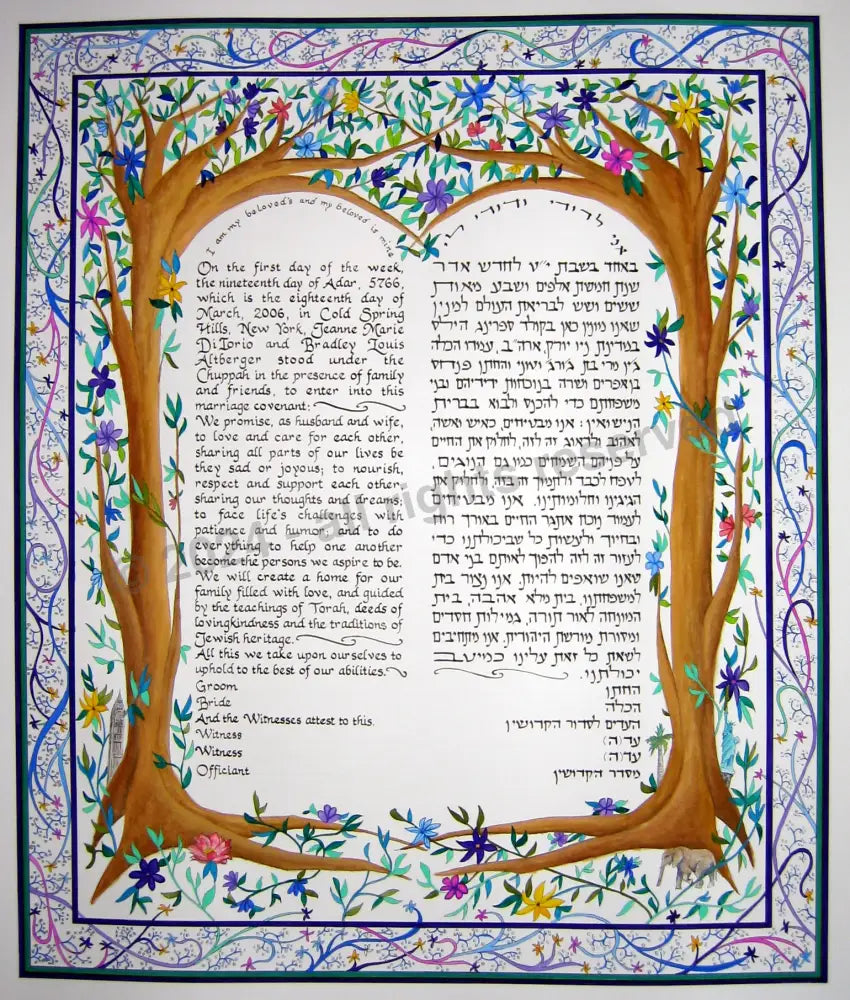 I am my beloved's and my beloved is mine
On the first day of the week,
the nineteenth day of Adar, 5766,
which is the eighteenth day of
March, 2006, in Cold Spring
Hills, New York, Jeanne Marie
DiIorio and Bradley Louis
Altberger stood under the
Chuppah in the presence of family
and friends, to enter into this
marriage covenant:
We promise, as husband and wife,
to love and care for each other,
sharing all parts of our lives be
they sad or joyous; to nourish,
respect and support each other,
sharing our thoughts and dreams;
to face life's challenges with
patience and humor; and to do
everything to help one another
become the persons we aspire to be.
We will create a home for our
family filled with love, and guided
by the teachings of Torah, deeds of
lovingkindness and the traditions of
Jewish heritage.
All this we take upon ourselves to
uphold to the best of our abilities.
Groom
Bride
And the Witnesses attest to this.
Witness
Witness
Officiant
אני לדודי ודודי לי
באחד בשבת י״ט לחדש אדר
שנת חמשת אלפים ושבע מאות
ששים ושש לבריאת העולם למנין
שאנו מונין כאן בקולד ספרינג הילס
במדינת ניו יורק, ארה״ב, עמדו הכלה
בן אפרים ושרה בנוכחות ידידיהם ובני
משפחותם כדי להכנס ולבוא בברית
הנישואין: אנו מבטיחים, כאיש ואשה,
לאהוב ולדאוג זה לזה, לחלוק את החיים
על פניהם השמחים כמו גם העוגבים,
לטפח לכבד ולתמוך זה בזה, לחלוק את
הגיגינו וחלומותינו. אנו מבטיחים
לעמוד נוכח אתגר החיים באורך רוח
ובחיוך ולעשות כל שביכולתנו כדי
לעזור זה לזה להפוך לאותם בני אדם
שאנו שואפים להיות. אנו ניצור בית
למשפחתנו, בית מלא אהבה, בית
המונחה לאור תורה, גמילות חסדים
ומסורת מורשת היהודית. אנו מתחייבים
לשאת כל זאת עלינו כמיטב
יכולתנו.
החתן
הכלה
העדים לסדור הקדושין
עד(ה)
עד(ה)
מסדר הקדושין
© 2024 - all rights reserved